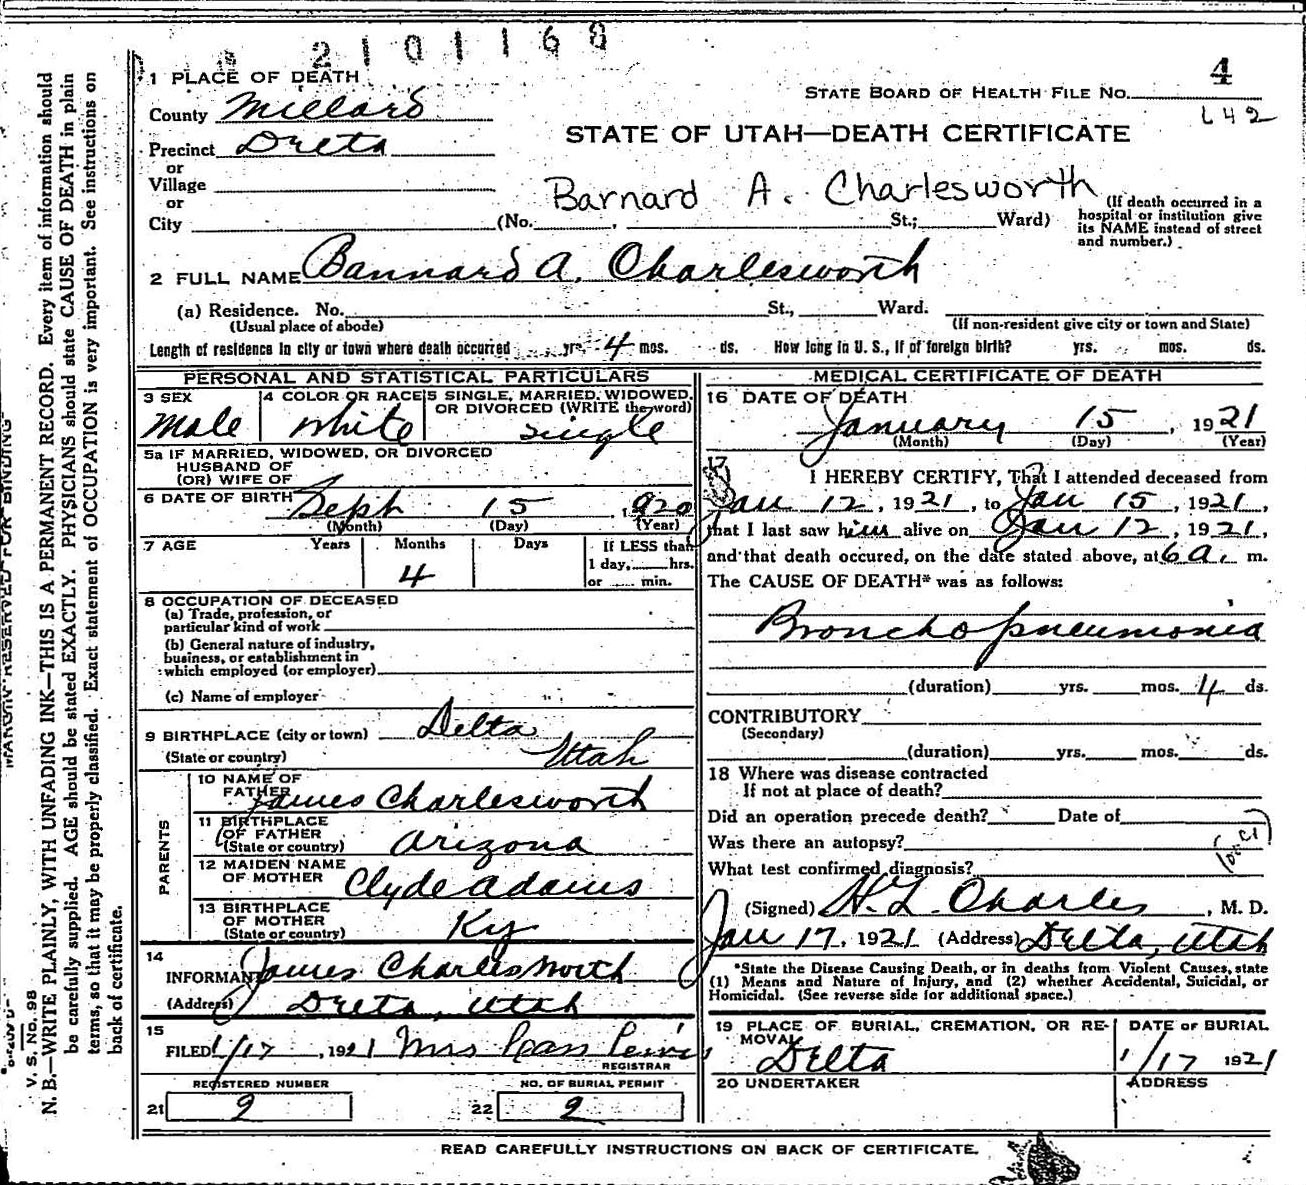 2101168
1 PLACE OF DEATH
4
STATE BOARD OF HEALTH FILE No.
County Millard
L42
STATE OF UTAH—DEATH CERTIFICATE
Precinct Delta
or
Village
or
Barnard A. Charlesworth
City (No. St.; Ward)
(If death occurred in a
hospital or institution give
its NAME instead of street
and number.)
2 FULL NAME Bannard A. Charlesworth
(a) Residence. No. St., Ward.
(Usual place of abode) (If non-resident give city or town and State)
Length of residence in city or town where death occurred yrs. 4 mos. ds. How long in U. S., if of foreign birth? yrs. mos. ds.
PERSONAL AND STATISTICAL PARTICULARS
3 SEX 4 COLOR OR RACE 5 SINGLE, MARRIED, WIDOWED,
OR DIVORCED (WRITE the word)
Male White Single
5a IF MARRIED, WIDOWED, OR DIVORCED
HUSBAND OF
(OR) WIFE OF
6 DATE OF BIRTH Sept 15 1920
(Month) (Day) (Year)
7 AGE Years Months Days If LESS than
1 day, hrs.
or min.
4
8 OCCUPATION OF DECEASED
(a) Trade, profession, or
particular kind of work
(b) General nature of industry,
business, or establishment in
which employed (or employer)
(c) Name of employer
9 BIRTHPLACE (city or town) Delta
(State or country) Utah
PARENTS
10 NAME OF
FATHER James Charlesworth
11 BIRTHPLACE
OF FATHER
(State or country) Arizona
12 MAIDEN NAME
OF MOTHER Clyde Adams
13 BIRTHPLACE
OF MOTHER
(State or country) Ky
14
INFORMANT James Charlesworth
(Address) Delta, Utah
15
FILED 1/17, 1921 Mrs
REGISTRAR
REGISTERED NUMBER NO. OF BURIAL PERMIT
21 2 22 2
MEDICAL CERTIFICATE OF DEATH
16 DATE OF DEATH
January 15, 1921
(Month) (Day) (Year)
17
I HEREBY CERTIFY, That I attended deceased from
Jan 12, 1921, to Jan 15, 1921,
that I last saw him alive on Jan 12, 1921,
and that death occured, on the date stated above, at 6 a. m.
The CAUSE OF DEATH* was as follows:
Broncho pneumonia
(duration) yrs. mos. 4 ds.
CONTRIBUTORY
(Secondary)
(duration) yrs. mos. ds.
18 Where was disease contracted
If not at place of death?
Did an operation precede death? Date of
Was there an autopsy?
What test confirmed diagnosis?
(Signed) H. L. Charles, M. D.
Jan 17, 1921 (Address) Delta, Utah
*State the Disease Causing Death, or in deaths from Violent Causes, state
(1) Means and Nature of Injury, and (2) whether Accidental, Suicidal, or
Homicidal. (See reverse side for additional space.)
19 PLACE OF BURIAL, CREMATION, OR RE-
MOVAL Delta
DATE OF BURIAL
1/17 1921
20 UNDERTAKER ADDRESS
READ CAREFULLY INSTRUCTIONS ON BACK OF CERTIFICATE.
MARGIN RESERVED FOR BINDING
V. S. No. 98
N. B.—WRITE PLAINLY, WITH UNFADING INK—THIS IS A PERMANENT RECORD. Every item of information should
be carefully supplied. AGE should be stated EXACTLY. PHYSICIANS should state CAUSE OF DEATH in plain
terms, so that it may be properly classified. Exact statement of OCCUPATION is very important. See instructions on
back of certificate.